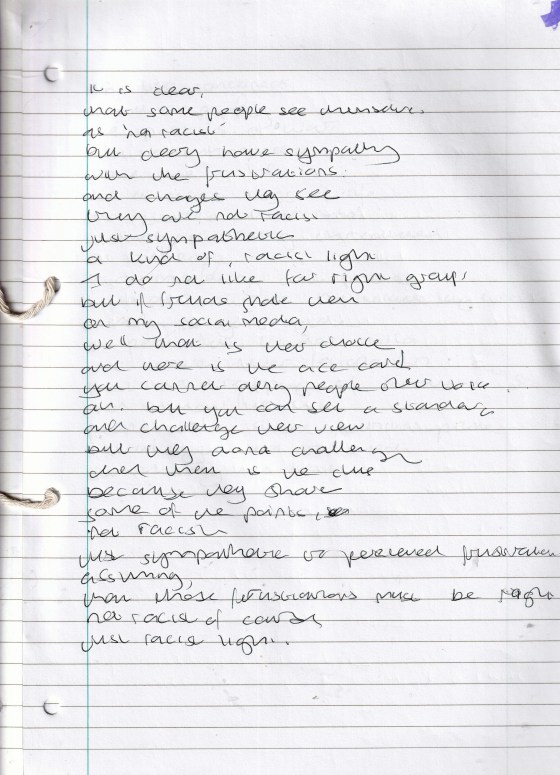 It is clear,
that some people see themselves
as 'not racist'
but deeply have sympathy
with the frustrations
and changes they see
they are not racist
just sympathetic
a kind of, racist light
I do not like far right groups
but if friends share them
on my social media,
well that is their choice
and here is the ace card
you cannot deny people their voice.
ah. but you can set a standard
and challenge their view
but they don't challenge
and then is the clue
because they share
some of the points,
not racist
just sympathetic to perceived frustration
assuming,
that those frustrations must be right
not racist of course
just racist light..